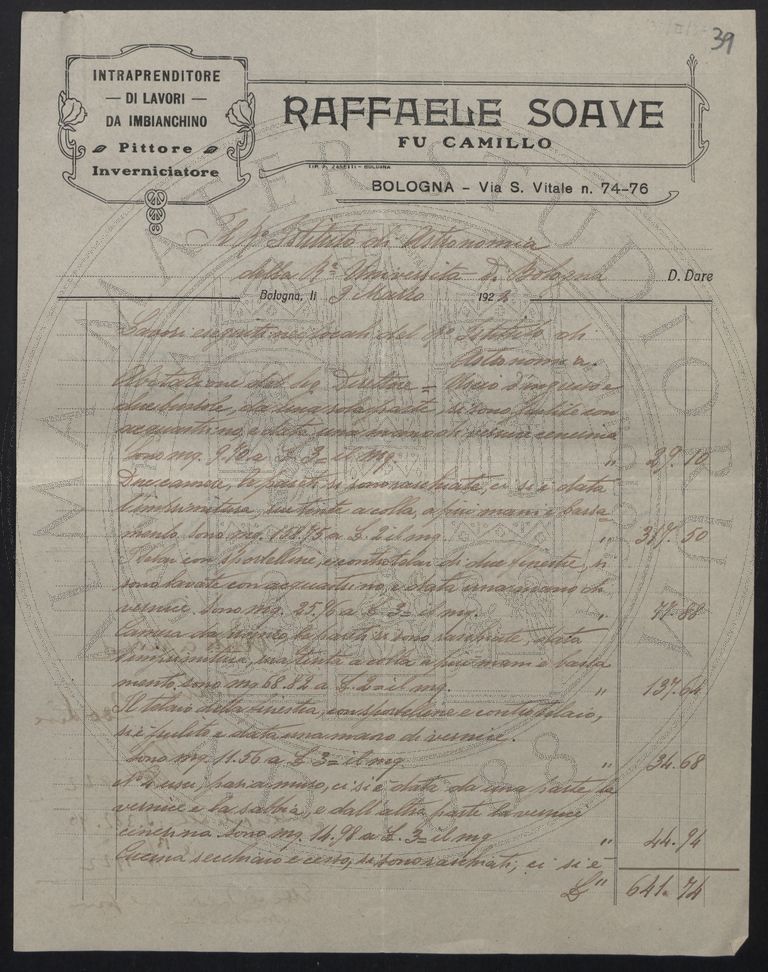 39
INTRAPRENDITORE
— DI LAVORI —
DA IMBIANCHINO
Pittore
Inverniciatore
RAFFAELE SOAVE
FU CAMILLO
TIP. A. ZANETTI - BOLOGNA
BOLOGNA - Via S. Vitale n. 74-76
Il R° Istituto di Astronomia
della Ra Università di Bologna D. Dare
Bologna, li 9 Marzo 192
Lavori eseguiti nei locali del R° Istituto di
Astronomia.
Abitazione del Sig. Direttore = Uscio d'ingresso e
due bussole, da una sola parte, si sono pulite con
acquastrino e data una mano di vernice
Sono mq. 9.70 a £ 3= il mq. " 29.10
Due camere, le pareti si sono raschiate, ci si è data
l'imprimitura, due tinte a colla, a più mani e basa=
mento, sono mq. 158.75 a £ 2 il mq. " 317.50
Telai con sportelline, e controtelai di due finestre, si
sono lavate con acquastrino, e data una mano di
vernice, sono mq. 25.96 a £ 3= il mq. " 77.88
Camera da pranzo, le pareti si sono raschiate, data
l'imprimitura, una tinta a colla a più mani e basa
mento, sono mq 68.82 a £ 2= il mq. " 137.64
Il telaio della finestra, con sportelline e controtelaio,
si è pulito e data una mano di vernice.
Sono mq. 11.56 a £ 3= il mq " 34.68
N° 4 usci, ci si è data da una parte la
vernice e la sabbia, e dall'altra parte la vernice
sono mq. 14.98 a £. 3= il mq " 44.94
Cucina secchiaio e cesso, si sono raschiati, ci si è
£ " 641.74